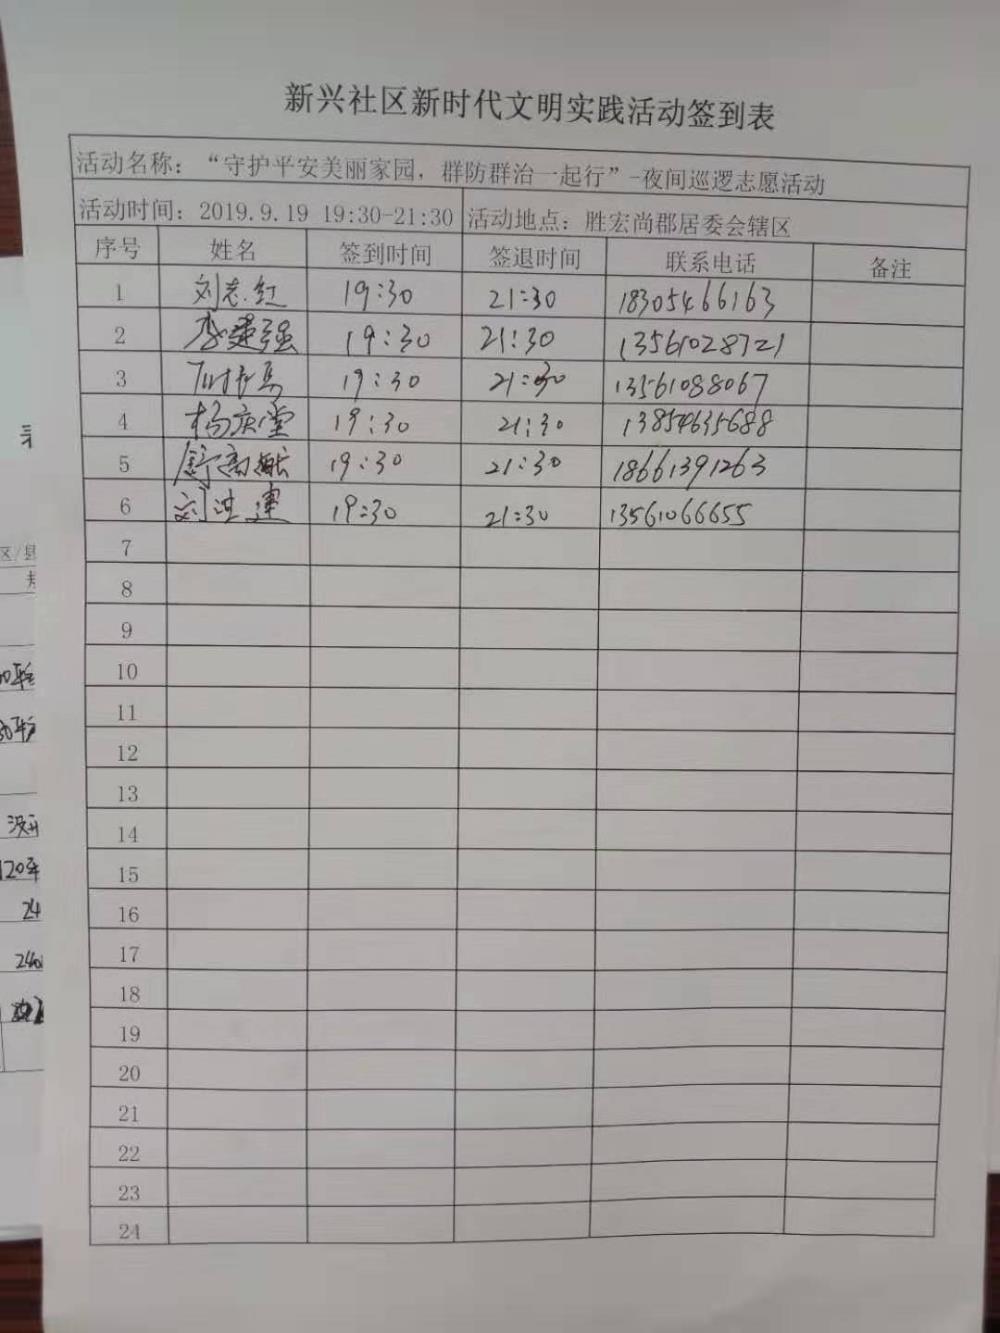 新兴社区新时代文明实践活动签到表
活动名称：“守护平安美丽家园，群防群治一起行”-夜间巡逻志愿活动
活动时间：2019.9.19 19:30-21:30 活动地点：胜宏尚郡居委会辖区
序号 姓名 签到时间 签退时间 联系电话 备注
1 刘志红 19:30 21:30 18305466163
2 李建强 19:30 21:30 13561028721
3 19:30 21:30 13561088067
4 杨庆堂 19:30 21:30 13854635688
5 19:30 21:30 18661391263
6 刘洪建 19:30 21:30 13561066655
7
8
9
10
11
12
13
14
15
16
17
18
19
20
21
22
23
24
区/县
120平
24